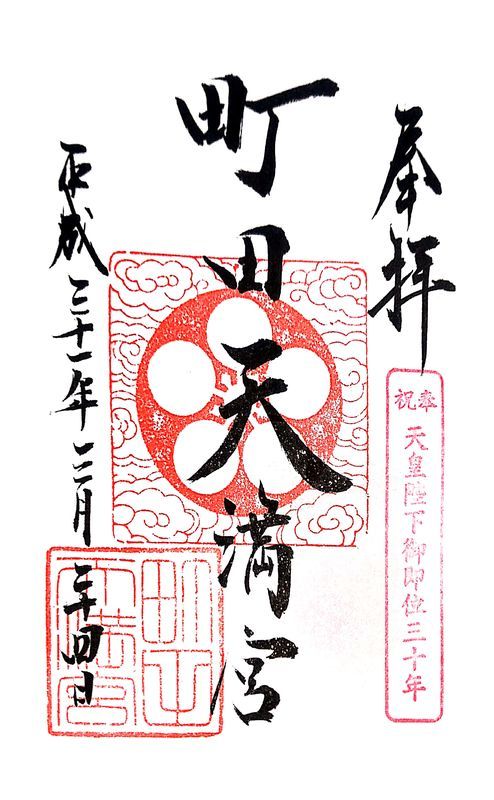 奉拝
奉祝
天皇陛下御即位三十年
町田天満宮
平成三十一年三月二十四日